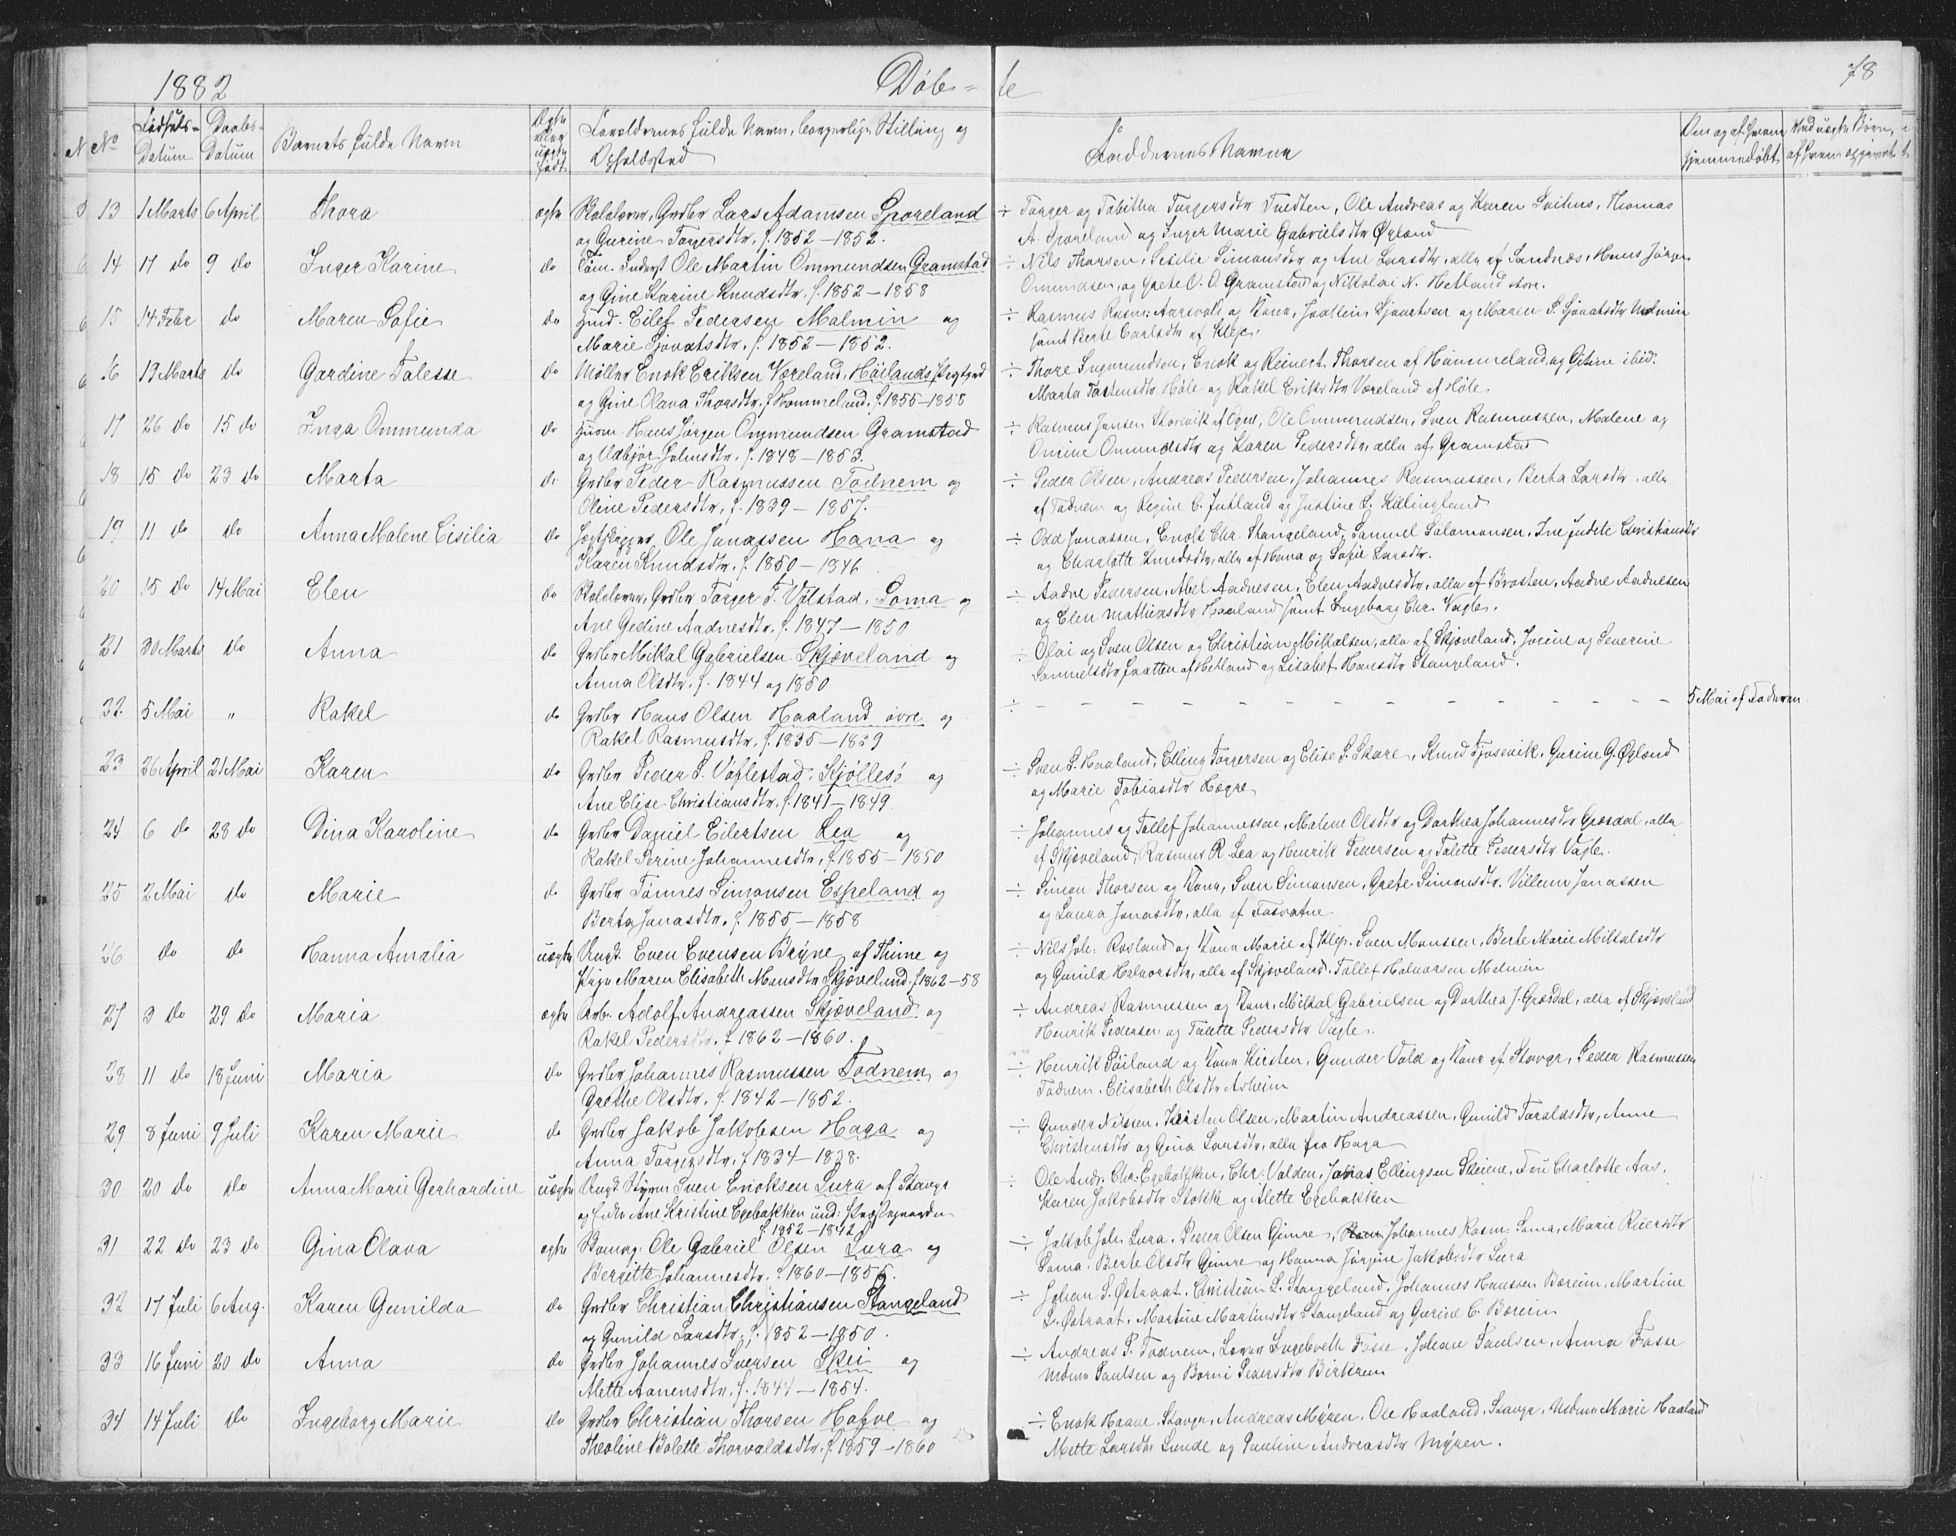 1882 Døb- te 78
No Fødsels- Datum Daabs- Datum Barnets fulde Navn Ægte eller uægte født Forældrenes fulde Navn, borgerlige Stilling og Opholdssted Faddernes Navne Om og af hvem hjemmedøbt Ved uægte Børn, af hvem opgivet
13 1 Marts 6 April Thora ægte Skolelærer, Grdbr Lars Adamsen Sporeland ÷ Torger og Tobitha Torgersdtr Tvedten, Ole Andreas og Karen Thomas
og Gurine Torgersdtr. f. 1852 – 1852. A. Sporeland og Inger Marie Gabrielsdtr Øgland
14 17 do 9 do Inger Karine do Ole Martin Ommundsen Gramstad ÷ Nils Thorsen, Sesilie Simonsdtr og Ane Larsdtr, alle af Sandnæs, Hans Jørgen
og Gine Karine Knudsdtr. f. 1852 – 1858 Ommundsen og Grete O. O. Gramstad og Nikolai N. Hetland store.
15 14 Febr do Maren Sofie do Eilef Pedersen Malmin og ÷ Rasmus Rasm: Aarsvold og Kone, Jostein Sjovartsen og Maren S. Sjovatsdtr Malmin
Marie Sjovatsdtr. f. 1852 – 1852. samt Berte Carlsdtr af Klep.
16 13 Marts do Gardine Talesse do Møller Enok Eriksen Væreland, Høilands Prgtgjd ÷ Thore Ingemundsen, Enok og Reinert Thorsen af Hommeland, og Gitine ibid.
og Gine Olava Thorsdtr. f. Hommeland, f. 1855 – 1858 Marta Høle og Rakel Eriksdtr Væreland af Høle
17 26 do 15 do Inga Ommunda do Husm. Hans Jørgen Ommundsen Gramstad ÷ Rasmus Jansen Storvik af Ogne, Ole Ommundsen, Sven Rasmussen, Malene og
og Odbjør Johnsdtr. f. 1848 – 1853. Omine Omundsdtr og Karen Pedersdtr, alle af Gramstad
18 15 do 23 do Marta do Grdbr Peder Rasmussen Todnem og ÷ Peder Olsen, Andreas Pedersen, Johannes Rasmussen, Berta Larsdtr, alle
Oline Pedersdtr. f. 1839 – 1857. af Todnem og Regine C. Jutland og Justine L. Killingland
19 11 do do Anna Malene Cisilia do Jegtskipper Ole Jonassen Hana og ÷ Odd Jonassen, Enok Chr. Stangeland, Samuel Salomonsen, Ine Judete Christiansdtr
Karen Knudsdtr. f. 1850 – 1846 og Charlotte Knudsdtr, alle af Hana og Sofie Larsdtr.
20 15 do 14 Mai Elen do Skolelærer, Grdbr Torger T. Vølstad, Soma og ÷ Aadne Pedersen, Abel Aadnesen, Elen Aadnesdtr, alle af Braaten, Aadne Aadnesen
Ane Gedine Aadnesdtr. f. 1847 – 1850 og Elen Mathiasdtr Haaland samt Ingeborg Chr. Vagle.
21 30 Marts do Anna do Grdbr Mikal Gabrielsen Skjæveland og ÷ Olai og Sven Olsen og Christian Mikkalsen, alle af Skjæveland, Jorine og Severine
Anna Olsdtr. f. 1844 og 1850 Samuelsdtr Faatten af Hetland og Lisabet Hansdtr Stangeland.
22 5 Mai " Rakel do Grdbr Hans Olsen Haaland øvre og ÷ – – – – – – – – – – – – – 5 Mai af Faderen.
Rakel Rasmusdtr. f. 1835 – 1839
23 26 April 21 Mai Karen do Grdbr Peder P. Voflestad, Kjøllesø og ÷ Sven L. Haaland, Elling Torgersen og Elise S. Skare, Knud Tjosevik, Gurine G. Øgland
Ane Elise Christiansdtr. f. 1841 – 1849. og Marie Tobiasdtr Hogre
24 6 do 28 do Dina Karoline do Grdbr Daniel Eilertsen Lea og ÷ Johannes og Tollef Johannessen, Malene Olsdtr og Dorthea Johannesdtr Græsdal, alle
Rakel Serine Johannesdtr. f. 1855 – 1850 af Skjæveland, Rasmus R. Lea og Henrik Pedersen og Talette Pedersdtr Vagle.
25 2 Mai do Marie do Grdbr Tønnes Simonsen Espeland og ÷ Simon Thorsen og Kone, Sven Simonsen, Grete Simonsdtr, Villum Jonassen
Berta Jonasdtr. f. 1855 – 1858 og Laura Jonasdtr, alle af Fosvatne
26 do do Hanna Amalia uægte Ungk. Even Evensen Bryne af Thime og ÷ Nils Joh: Rosland og Kone Marie af Klep. Sven Monssen, Berte Marie Mikkalsdtr
Pige Maren Elisabeth Monsdtr Skjæveland. f. 1862 – 58 og Gunild Halvorsdtr, alle af Skjæveland. Tollef Halvorsen Malmin
27 3 do 29 do Maria ægte Arb. Adolf Andreassen Skjæveland og ÷ Andreas Rasmussen og Kone, Mikkal Gabrielsen og Dorthea J. Græsdal, alle af Skjæveland
Rakel Pedersdtr. f. 1862 – 1860. Henrik Pedersen og Talette Pedersdtr Vagle.
28 11 do 18 Juni Maria do Grdbr Johannes Rasmussen Todnem og ÷ Henrik Soiland og Kone Kirsten, Gunder Vold og Kone af Stavgr, Peder Rasmussen
Grethe Olsdtr. f. 1842 – 1852. Todnem. Elisabeth Olsdtr Asheim
29 8 Juni 9 Juli Karen Marie do Grdbr Jakob Jakobsen Haga og ÷ Gunder Nilsen, Kirsten Olsen, Martin Andreassen, Gunild Toraldsdtr, Anne
Anna Torgersdtr. f. 1834 – 1838. Christensdtr og Gina Larsdtr, alle fra Haga
30 20 do do Anna Marie Gerhardine uægte Ungk. Styrm. Sven Enoksen Lura af Stavgr ÷ Ole Andr. Chr. Egebakken, Chr. Valden, Jonas Ellingsen Skeiene, Fru Charlotte Aas,
og Enke Ane Kristine Egebakken und: Præstegaarden Karen Jakobsdtr Stokk og Alette Egebakken
f. 1852 – 1842
31 22 do 23 do Gina Olava ægte Ole Gabriel Olsen Lura og ÷ Jakob Joh. Lura, Peder Olsen Gimre, Johannes Rasm: Soma, Marie Reiersdtr
Bergitte Johannesdtr. f. 1860 – 1856. Soma. Berte Olsdtr Gimre og Hanna Jørgine Jakobsdtr Lura
32 17 Juli 6 Aug. Karen Gunilda do Grdbr Christian Christiansen Stangeland ÷ Johan S. Østraat, Christian L. Stangeland, Johannes Hansen Bæreim, Martine
og Gunild Larsdtr. f. 1852 – 1850. L. Østraat, Martine Martinsdtr Stangeland og Gurine C. Bæreim
33 16 Juni 20 do Anna do Grdbr Johannes Iversen Skei og ÷ Andreas P. Todnem, Lærer Ingebreth Fosse, Johan Paulsen, Anna Fosse
Mette Aanensdtr. f. 1844 – 1854. Madme Paulsen og Borni Pedersdtr Birkrem
34 14 Juli do Ingeborg Marie do Grdbr Christian Thorsen Hofve og ÷ Enok Haave, Stavgr, Andreas Myren, Ole Haaland, Stavgr, Madme Marie Haaland
Theoline Bolette Thorvaldsdtr. f. 1859 – 1860 Mette Larsdtr Lunde og Pauline Andreasdtr Myren.